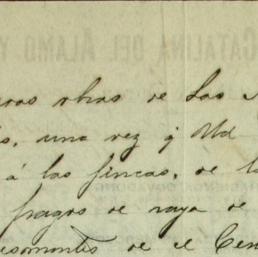 CATALINA DEL ALAMO Y
obras de Las
una vez q Ud
á las fincas, de l
pagos de raya de
desmontes de el Cen